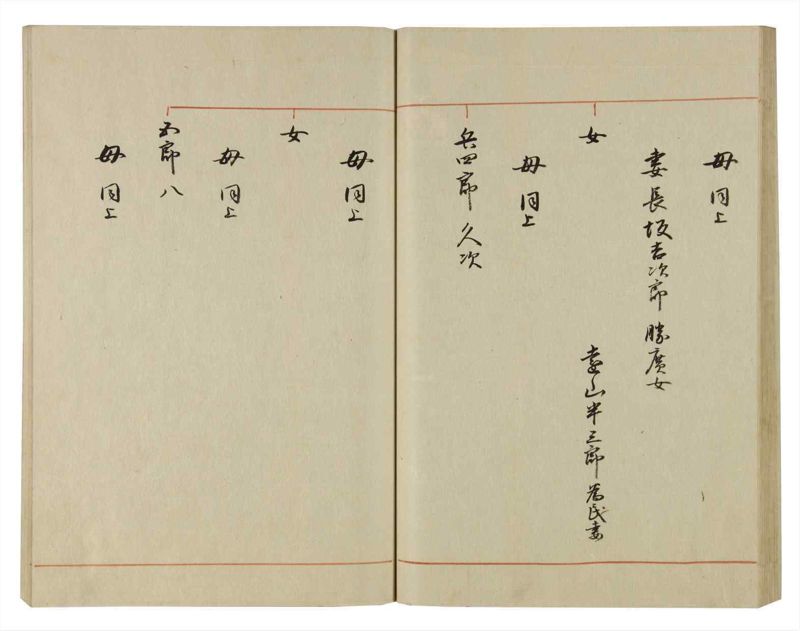 母同上
妻長坂吉次郎勝廣女
女
遠山半三郎為民妻
母同上
兵四郎久次
母同上
女
母同上
五郎八
母同上